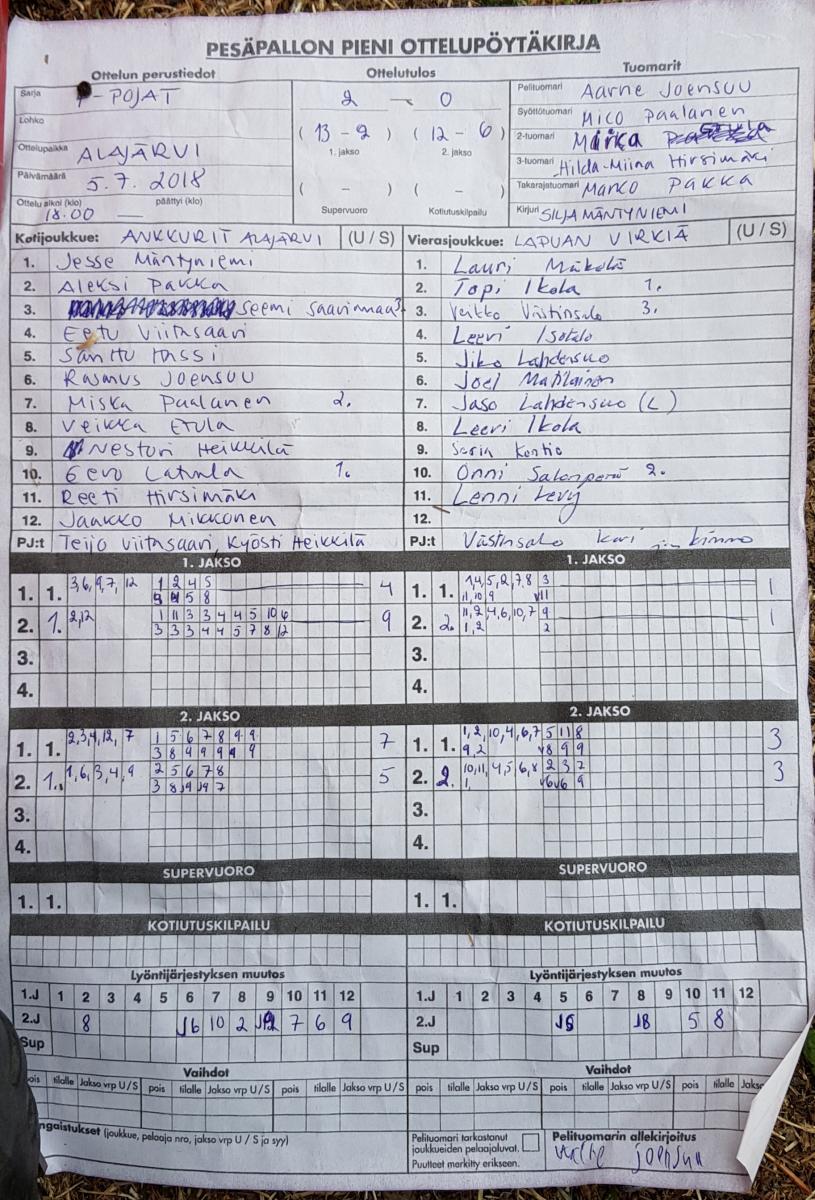 PESÄPALLON PIENI OTTELUPÖYTÄKIRJA
Ottelun perustiedot Ottelutulos Tuomarit
Sarja -POJAT 2 - 0 Pelituomari Aarne Joensuu
Lohko Syöttötuomari Mico Paalanen
(13 - 2) (12 - 6) 2-tuomari Miika
Ottelupaikka ALAJÄRVI 1. jakso 2. jakso 3-tuomari Hilda-Miina Hirsimäki
Päivämäärä 5.7. 2018 ( - ) ( - ) Takarajatuomari Marko Pakka
Ottelu alkoi (klo) 18.00 päättyi (klo) — Supervuoro Kotiutuskilpailu Kirjuri SILJA MÄNTYNIEMI
Kotijoukkue: ANKKURIT ALAJÄRVI (U / S) Vierasjoukkue: LAPUAN VIRKIÄ (U / S)
1. Jesse Mäntyniemi 1. Lauri Mäkelä
2. Aleksi Pakka 2. Topi Ikola 1.
3. Seemi Saarimaa 3. Veikko Västinsalo 3.
4. Eetu Viitasaari 4. Leevi Isotalo
5. Santtu Hassi 5. Jiko Lahdensuo
6. Rasmus Joensuu 6. Joel Matilainen
7. Miska Paalanen 2. 7. Jaso Lahdensuo (L)
8. Veikka Etula 8. Leevi Ikola
9. Nestori Heikkilä 9. Kontio
10. Eero Latvala 1. 10. Onni Salonperä 2.
11. Reeti Hirsimäki 11. Lenni Levy
12. Jaakko Mikkonen 12.
PJ:t Teijo Viitasaari, Kyösti Heikkilä PJ:t Västinsalo Kari Kimmo
1. JAKSO 1. JAKSO
1. 1. 3,6,9,7, 12 1 2 4 5 4 1. 1. 1,4,5,2,7,8 3 1
5 8 11,10 9 11
2. 1. 2,12 1 11 3 3 4 4 5 10 6 9 2. 2. 11,2,4,6,10,7 9 1
3 3 3 4 4 5 7 8 12 1,2 2
3. 3.
4. 4.
2. JAKSO 2. JAKSO
1. 1. 2,3,4,12, 7 1 5 6 7 8 9 9 7 1. 1. 1,2,10,4,6,7 5 11 8 3
3 8 9 9 9 9 9 9,2 8 9 9
2. 1. 1,6,3,4,9 2 5 6 7 8 5 2. 2. 10,11,4,5,6,8 2 3 7 3
3 8 9 7 1, 6 6 9
3. 3.
4. 4.
SUPERVUORO SUPERVUORO
1. 1. 1. 1.
KOTIUTUSKILPAILU KOTIUTUSKILPAILU
Lyöntijärjestyksen muutos Lyöntijärjestyksen muutos
1.J 1 2 3 4 5 6 7 8 9 10 11 12 1.J 1 2 3 4 5 6 7 8 9 10 11 12
2.J 8 J6 10 2 7 6 9 2.J J5 J8 5 8
Sup Sup
Vaihdot Vaihdot
pois tilalle Jakso vrp U/S pois tilalle Jakso vrp U/S pois tilalle Jakso vrp U/S pois tilalle Jakso vrp U/S pois tilalle Jakso vrp U/S pois tilalle Jakso
ngaistukset (joukkue, pelaaja nro, jakso vrp U / S ja syy) Pelituomari tarkastanut Pelituomarin allekirjoitus
joukkueiden pelaajaluvat. Joensuu
Puutteet merkitty erikseen.